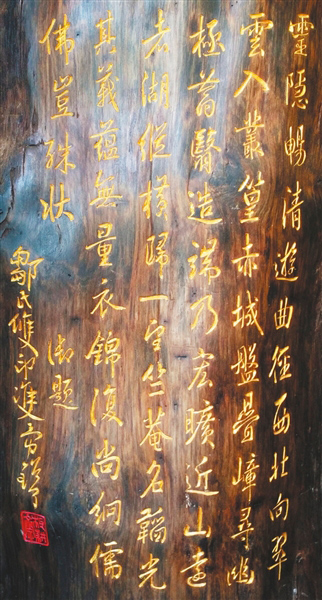 靈隱暢清遊曲徑西北向翠
雲入叢篁赤城盤疊嶂尋幽
極蓊翳造端乃宏曠近山遠
者湖縱橫歸一望竺菴名韜光
其義蘊無量衣錦復尚絅儒
佛豈殊狀 御題
鄒氏